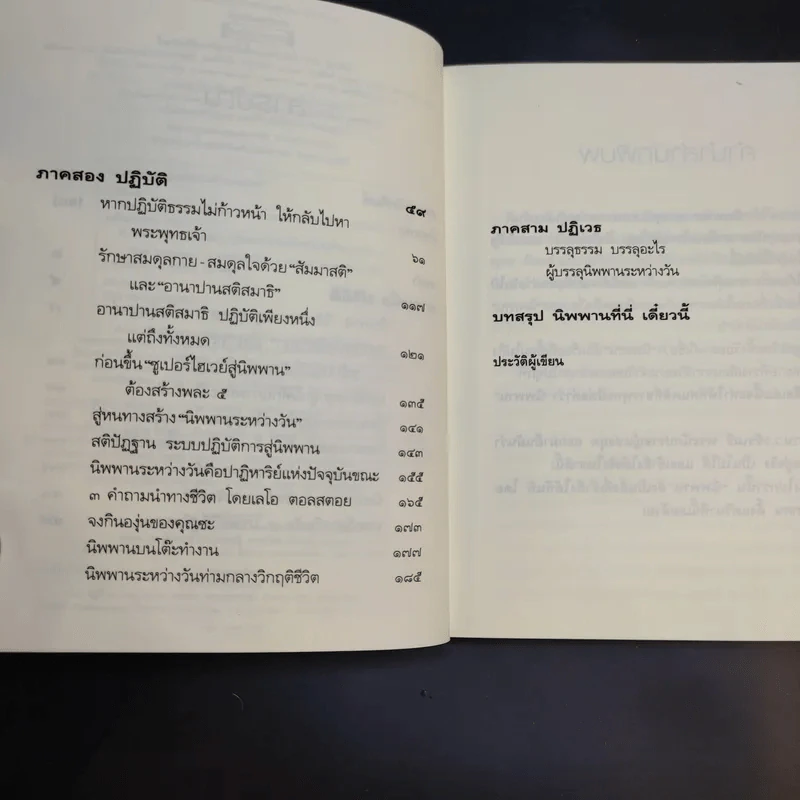 ภาคสอง ปฏิบัติ ๕๙
หากปฏิบัติธรรมไม่ก้าวหน้า ให้กลับไปหา
พระพุทธเจ้า ๖๑
รักษาสมดุลกาย-สมดุลใจด้วย “สัมมาสติ”
และ “อานาปานสติสมาธิ” ๑๑๗
อานาปานสติสมาธิ ปฏิบัติเพียงหนึ่ง
แต่ถึงทั้งหมด ๑๒๑
ก่อนขึ้น “ซูเปอร์ไฮเวย์สู่นิพพาน”
ต้องสร้างพละ ๕ ๑๓๕
สู่หนทางสร้าง “นิพพานระหว่างวัน” ๑๔๑
สติปัฏฐาน ระบบปฏิบัติการสู่นิพพาน ๑๔๓
นิพพานระหว่างวันคือปาฏิหาริย์แห่งปัจจุบันขณะ ๑๕๕
๓ คำถามนำทางชีวิต โดยเลโอ ตอลสตอย ๑๖๕
จงกินองุ่นของคุณซะ ๑๗๓
นิพพานบนโต๊ะทำงาน ๑๗๗
นิพพานระหว่างวันท่ามกลางวิกฤติชีวิต ๑๘๕
ภาคสาม ปฏิเวธ
บรรลุธรรม บรรลุอะไร
ผู้บรรลุนิพพานระหว่างวัน
บทสรุป นิพพานที่นี่ เดี๋ยวนี้
ประวัติผู้เขียน